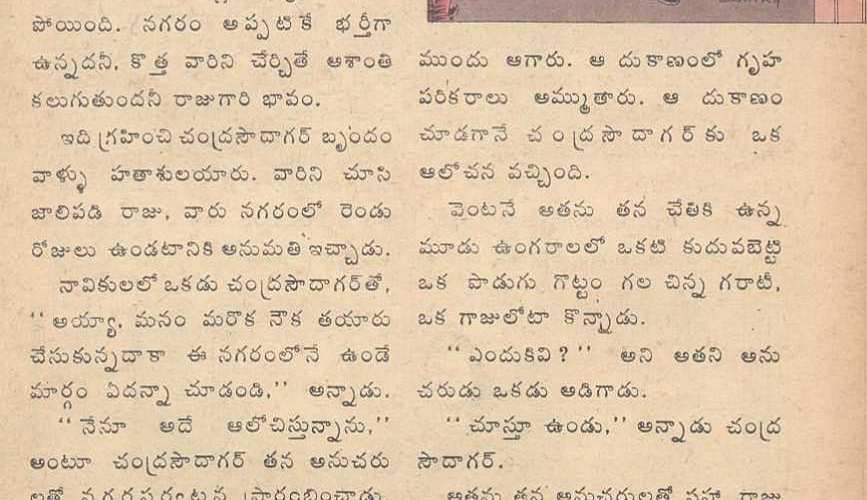 పోయింది. నగరం అప్పటికే భర్తీగా
ఉన్నదనీ, కొత్త వారిని చేర్చితే అశాంతి
కలుగుతుందనీ రాజుగారి భావం.
ఇది గ్రహించి చంద్రసౌదాగర్ బృందం
వాళ్ళు హతాశులయారు. వారిని చూసి
జాలిపడి రాజు, వారు నగరంలో రెండు
రోజులు ఉండటానికి అనుమతి ఇచ్చాడు.
నావికులలో ఒకడు చంద్రసౌదాగర్‌తో,
‘‘అయ్యా, మనం మరొక నౌక తయారు
చేసుకున్నదాకా ఈ నగరంలోనే ఉండే
మార్గం ఏదన్నా చూడండి,’’ అన్నాడు.
‘‘నేనూ అదే ఆలోచిస్తున్నాను,’’
అంటూ చంద్రసౌదాగర్ తన అనుచరు
లతో నగరపర్యటన ప్రారంభించాడు.
ముందు ఆగారు. ఆ దుకాణంలో గృహ
పరికరాలు అమ్ముతారు. ఆ దుకాణం
చూడగానే చంద్రసౌదాగర్‌కు ఒక
ఆలోచన వచ్చింది.
వెంటనే అతను తన చేతికి ఉన్న
మూడు ఉంగరాలలో ఒకటి కుదువబెట్టి
ఒక పొడుగు గొట్టం గల చిన్న గరాటీ,
ఒక గాజులోటా కొన్నాడు.
‘‘ఎందుకివి?’’ అని అతని అను
చరుడు ఒకడు అడిగాడు.
‘‘చూస్తూ ఉండు,’’ అన్నాడు చంద్ర
సౌదాగర్.
అతను తన అనుచరులతో సహా రాజు